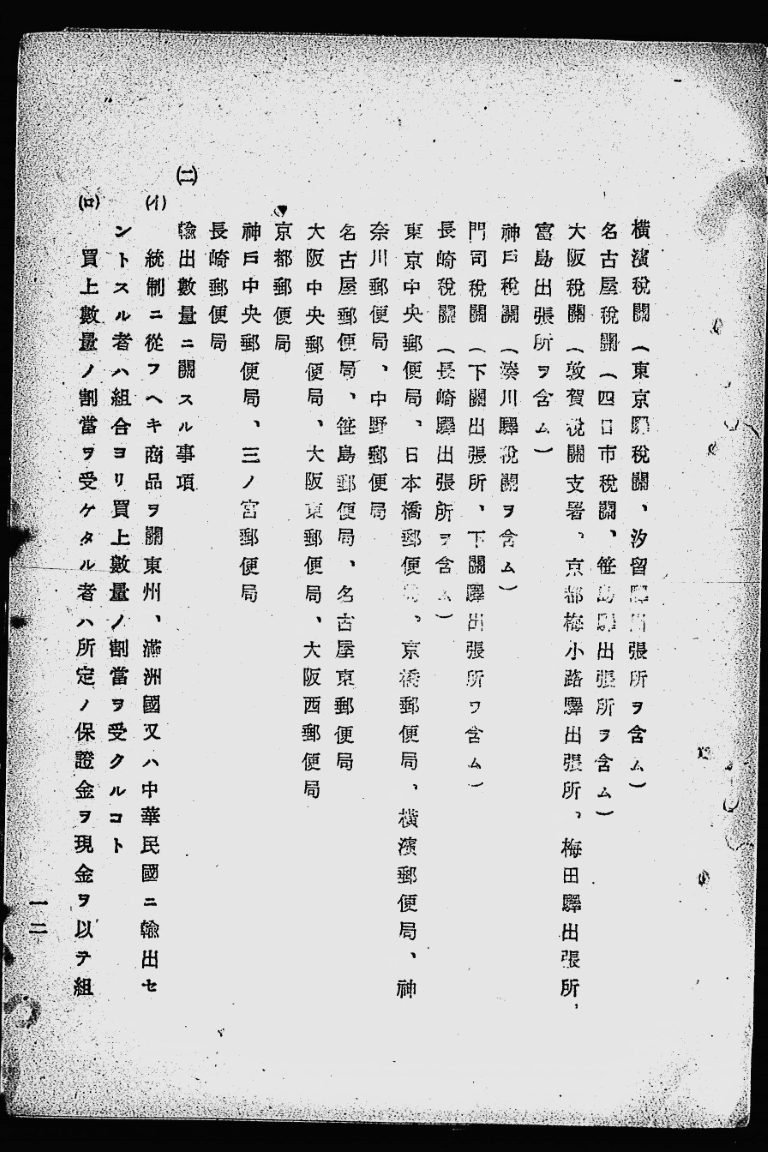 橫濱稅關（東京驛稅關、汐留驛出張所ヲ含ム）
名古屋稅關（四日市稅關、笹島驛出張所ヲ含ム）
大阪稅關（敦賀稅關支署、京都梅小路驛出張所、梅田驛出張所、
富島出張所ヲ含ム）
神戶稅關（湊川驛稅關ヲ含ム）
門司稅關（下關出張所、下關驛出張所ヲ含ム）
長崎稅關（長崎驛出張所ヲ含ム）
東京中央郵便局、日本橋郵便局、京橋郵便局、橫濱郵便局、神
奈川郵便局、中野郵便局
名古屋郵便局、笹島郵便局、名古屋東郵便局
大阪中央郵便局、大阪東郵便局、大阪西郵便局
京都郵便局
神戶中央郵便局、三ノ宮郵便局
長崎郵便局
(二) 輸出數量ニ關スル事項
(イ) 統制ニ從フヘキ商品ヲ關東州、滿洲國又ハ中華民國ニ輸出セ
ントスル者ハ組合ヨリ買上數量ノ割當ヲ受クルコト
(ロ) 買上數量ノ割當ヲ受ケタル者ハ所定ノ保證金ヲ現金ヲ以テ組
一二